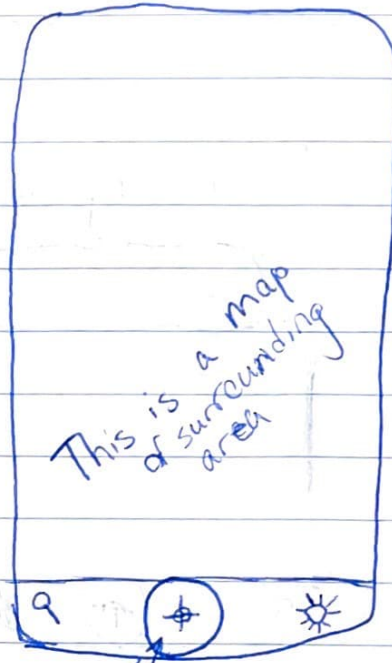 This is a map
of surrounding
area